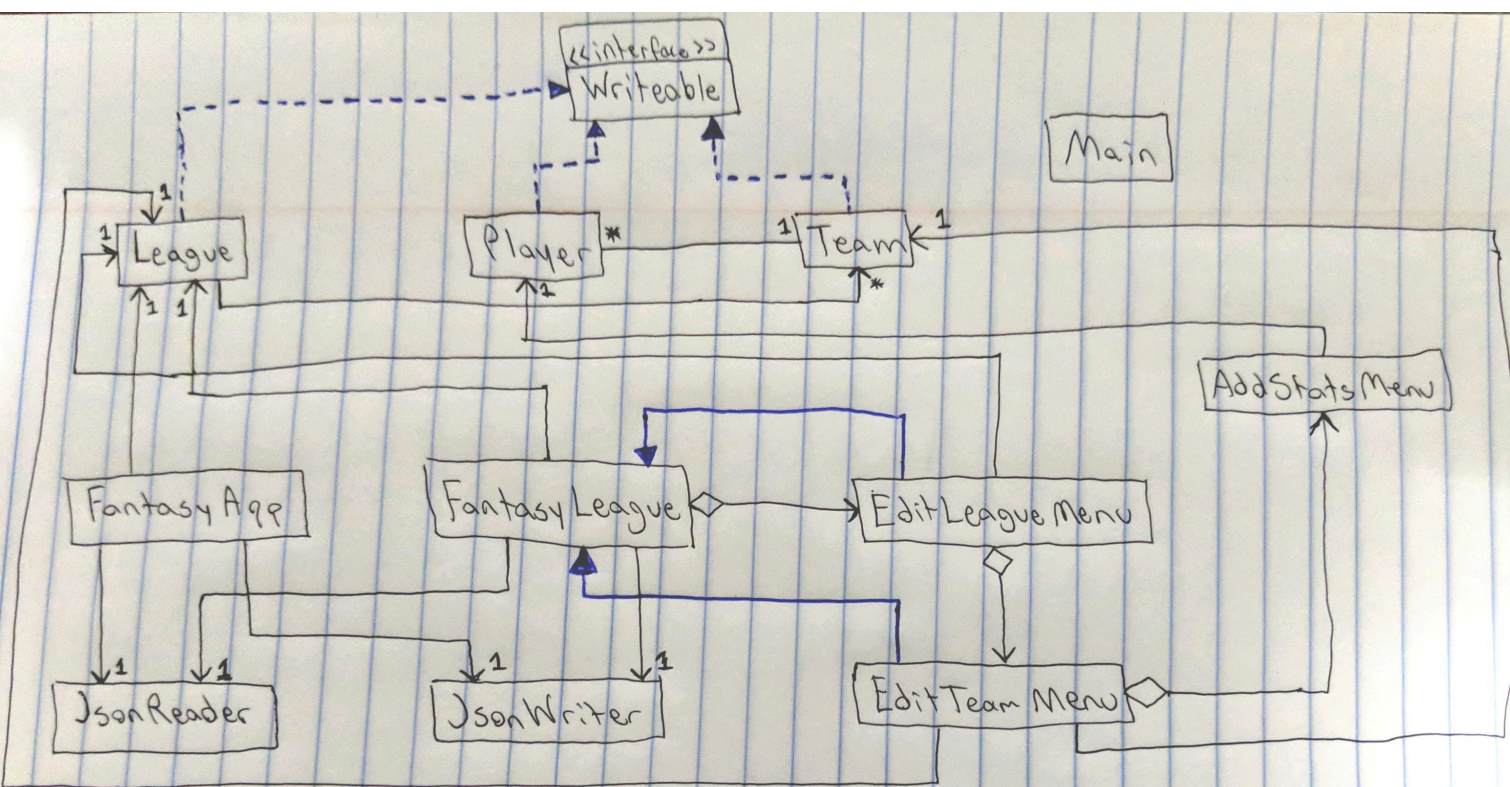 <<interface>>
Writeable
Main
1
1
League
Player
*
1
Team
1
1
1
1
*
AddStatsMenu
FantasyApp
FantasyLeague
EditLeagueMenu
1
1
1
1
JsonReader
JsonWriter
EditTeamMenu